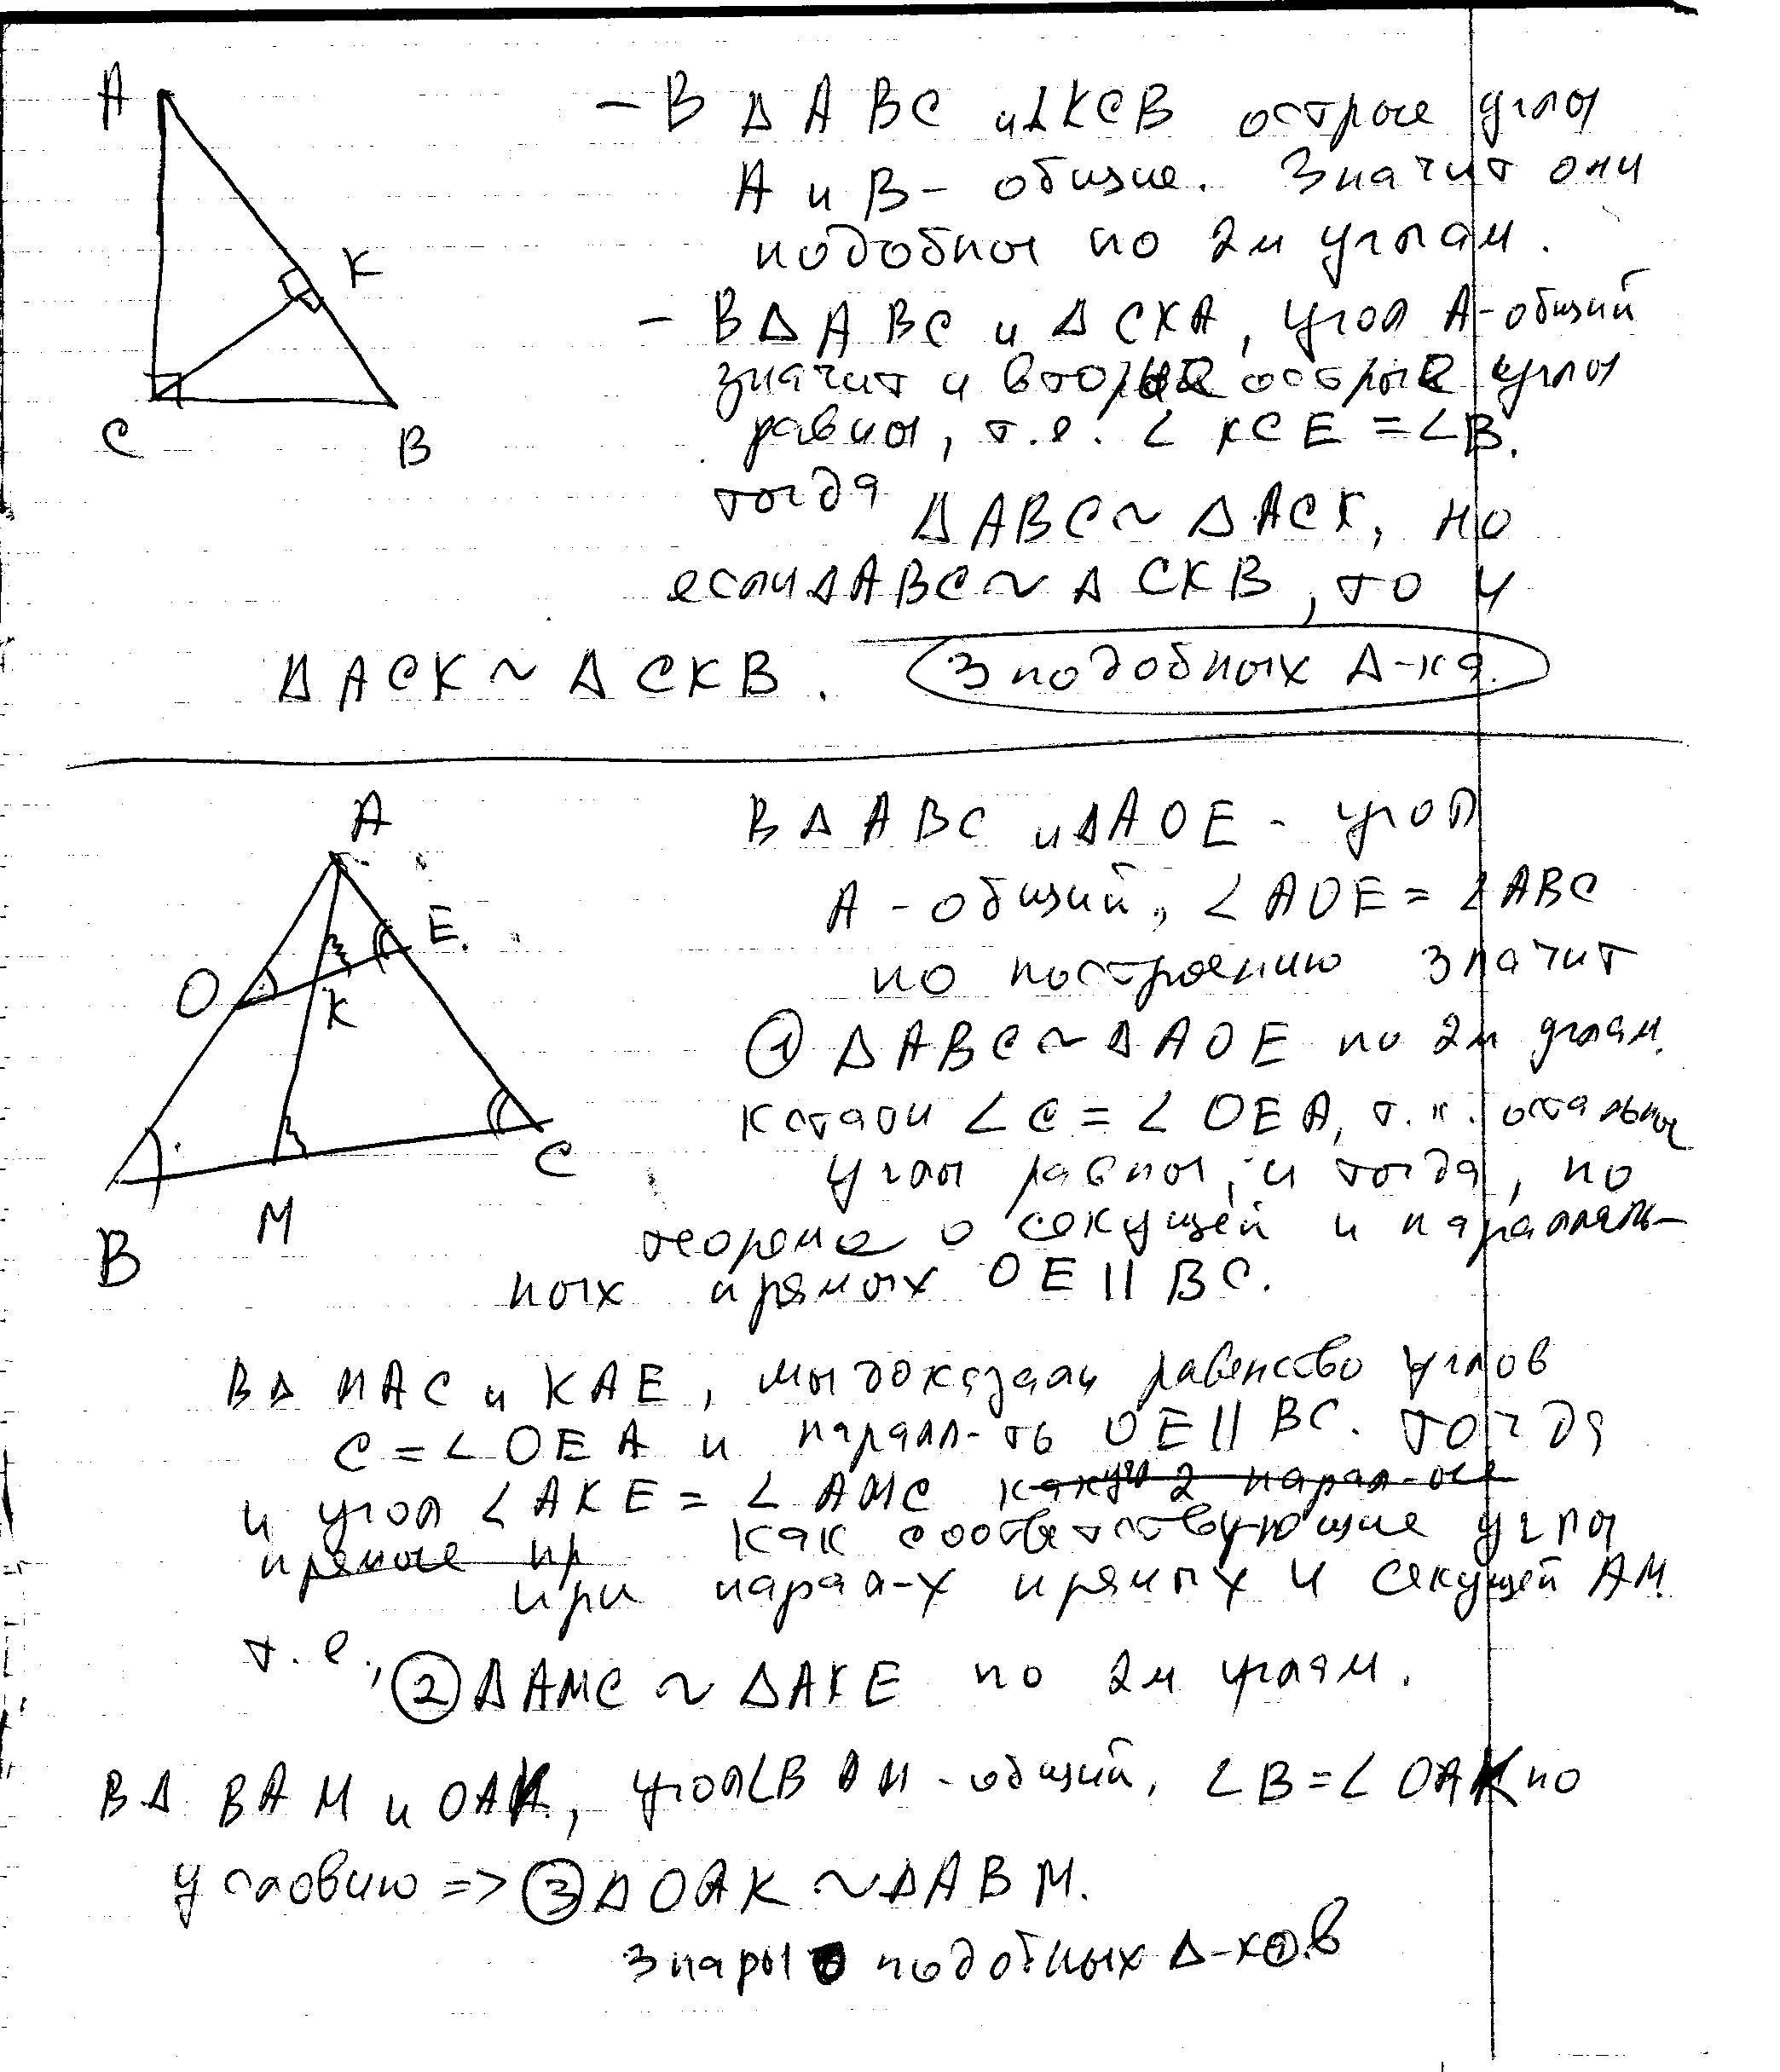 A
K
C
B
– В Δ ABC и Δ KCB острые углы
A и B – общие. Значит они
подобны по 2м углам.
– В Δ ABC и Δ CKA, угол A-общий
значит и вторые острые углы
равны, т.е. ∠ KCE = ∠B.
тогда
Δ ABC ~ Δ ACK, но
если Δ ABC ~ Δ CKB, то и
Δ ACK ~ Δ CKB. 3 подобных Δ-ка.
A
E.
O
K
C
M
B
В Δ ABC и Δ AOE - угол
A - общий, ∠ AOE = ∠ ABC
по построению значит
① Δ ABC ~ Δ AOE по 2м углам.
кстати ∠ C = ∠ OEA, т.к. остальные
углы равны, и тогда, по
теореме о секущей и параллель-
ных прямых OE || BC.
В Δ MAC и KAE, мы доказали равенство углов
C = ∠ OEA и паралл-ть OE || BC. тогда
и угол ∠ AKE = ∠ AMC как 2 парал-ые
прямые пр как соответствующие углы
при парал-х прямых и секущей AM.
т.е., ② Δ AMC ~ Δ AKE по 2м углам.
В Δ BAM и OAK, угол ∠ BAM - общий, ∠ B = ∠ OAK по
условию => ③ Δ OAK ~ Δ ABM.
3 пары подобных Δ-ков